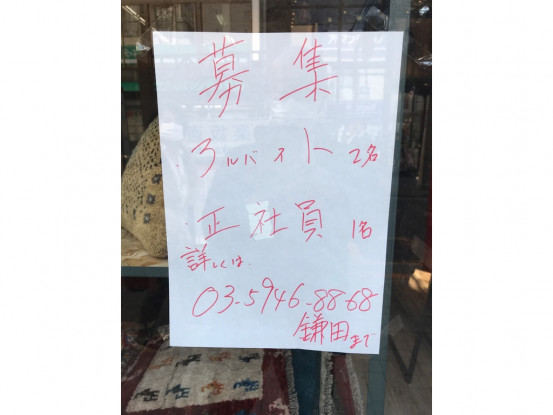 募集
アルバイト 2名
正社員 1名
詳しくは
03-5946-8868
鎌田まで